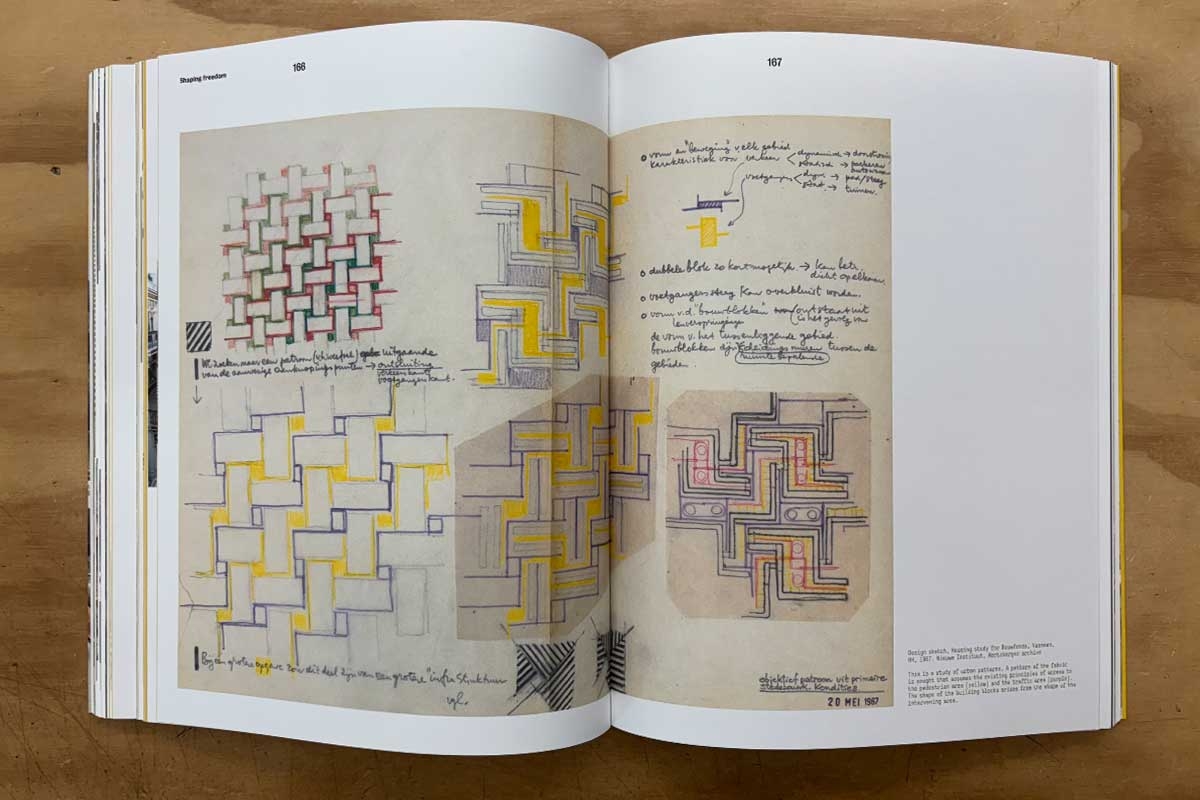 Shaping freedom
166
167
vorm en "beweging" v. elk gebied
karakteristiek van verkeer
dynamisch → doorstroom
statisch → parkeren
voetganger
dyn. → pad/steeg
stat. → tuinen.
dubbele blok zo kort mogelijk → kan betr.
dicht opelkaar.
voetgangerssteeg kan overkluist worden.
vorm v.d. "bouwblokken" ontstaat uit
is het gevolg van
de vorm v. het tussenliggende gebied.
bouwblokken zijn scheidings muren tussen de
ruimte bepalende
gebieden.
We zoeken naar een patroon uitgaande
van de aanwezige aanknopingspunten → ontsluiting
verkeerskant
voetgangerskant.
Bij een grotere opgave zou dit deel zijn van een grotere "infrastruktuur
vgl.
objektief patroon uit primaire
stedebouwk. kondities
20 MEI 1967
Design sketch, Housing study for Bouwfonds, Vaassen,
NH, 1967. Nieuwe Instituut, Hertzberger archive
This is a study of urban patterns. A pattern of the fabric
is sought that assumes the existing principles of access to
the pedestrian area (yellow) and the traffic area (purple).
The shape of the building blocks arises from the shape of the
intervening area.